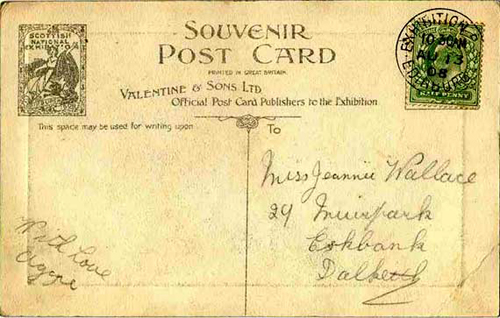 SCOTTISH
NATIONAL
EXHIBITION
SOUVENIR
POST CARD
PRINTED IN GREAT BRITAIN
VALENTINE & SONS LTD
Official Post Card Publishers to the Exhibition
EXHIBITION
10.30AM
AU 13
08
EDINBURGH
This space may be used for writing upon
To
Miss Jeannie Wallace
29 Muirpark
Eskbank
Dalkeith
With love